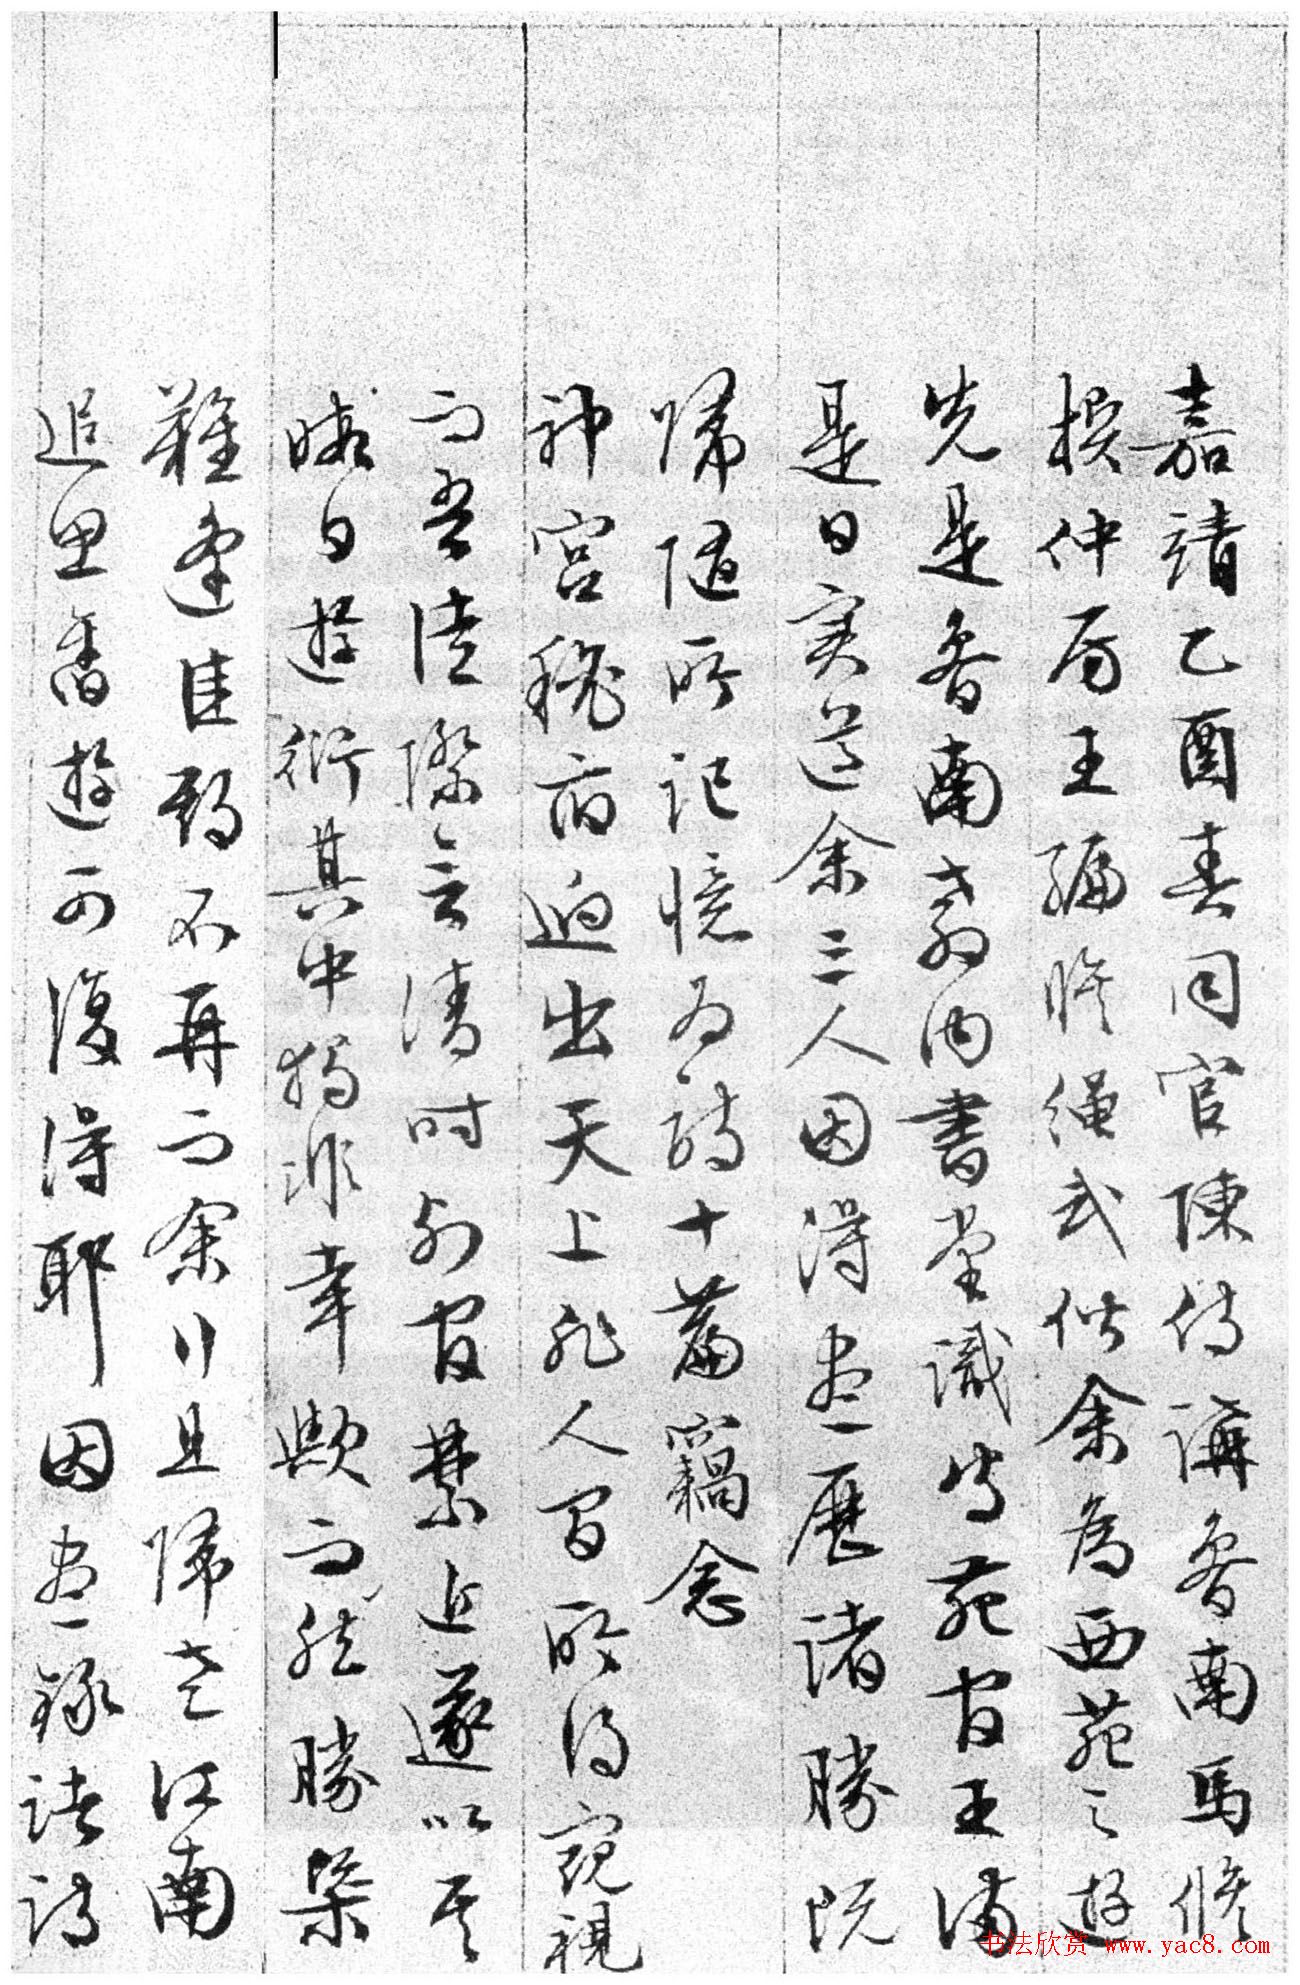 嘉靖乙酉春同官陳侍講魯南馬脩
撰仲房王編脩繩武偕余為西苑之遊
先是魯南教內書堂識守苑官王滿
是日實導余三人因得盡歷諸勝既
歸隨所記憶為詩十篇竊念
神宮秘府迥出天上非人間所得窺視
而吾徒際會清時列官禁近遂以其
暇日遊衍其中獨非幸歟而然勝槩
難逢佳期不再而余行且歸老江南
追思舊遊可復得耶因盡錄諸詩
书法欣赏 www.yac8.com